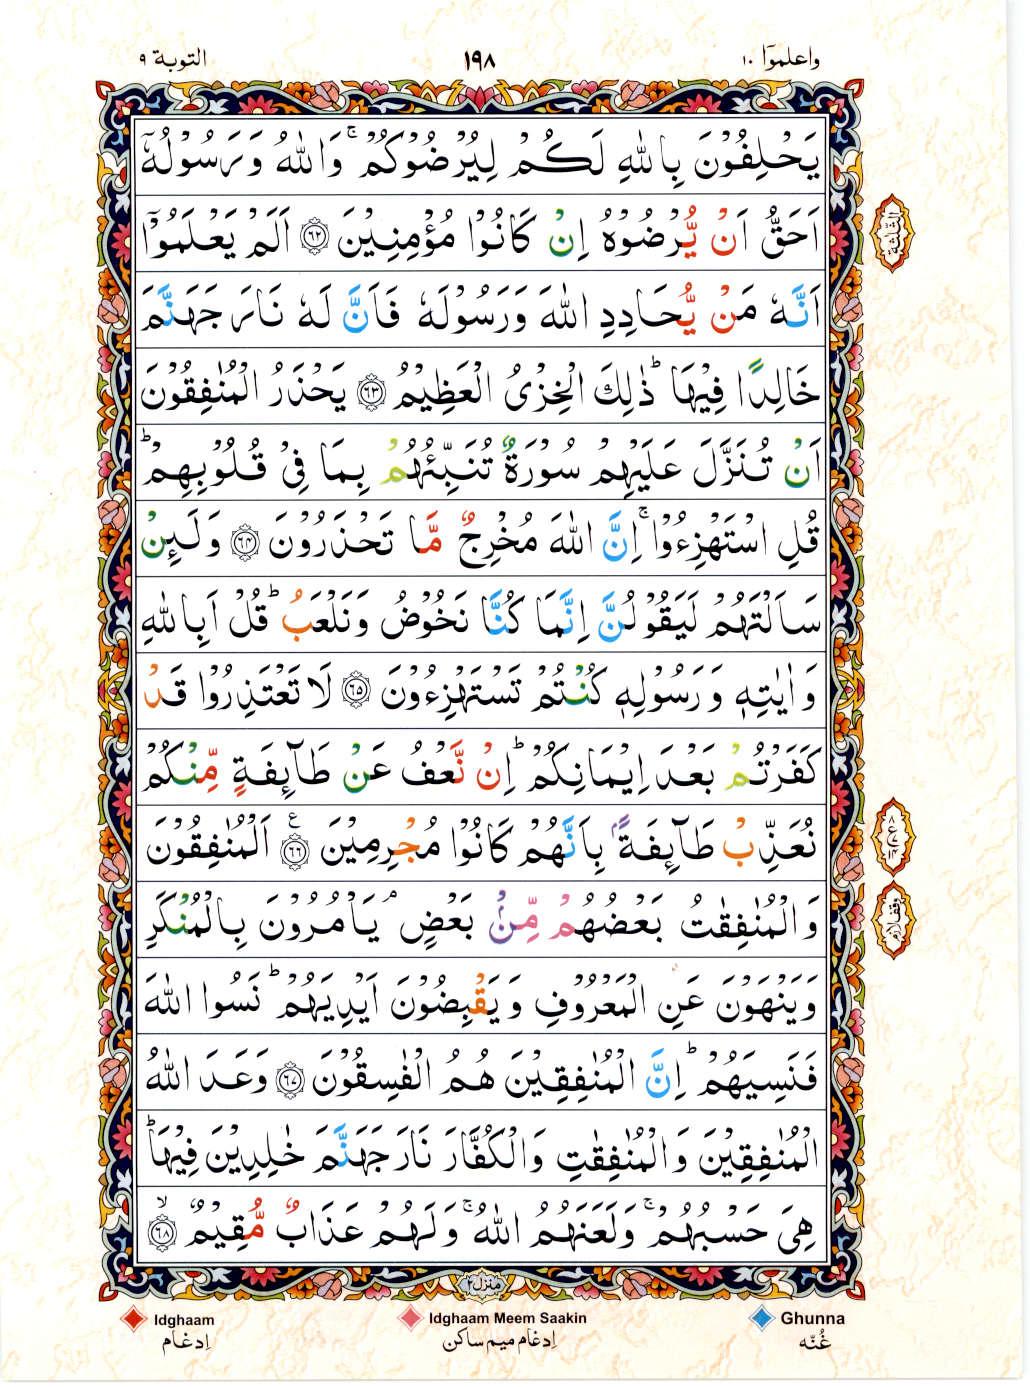 واعلموٓا ١٠
١٩٨
التوبة ٩
يَحْلِفُوْنَ بِاللّٰهِ لَكُمْ لِيُرْضُوْكُمْ ۚ وَاللّٰهُ وَرَسُوْلُهٗۤ
اَحَقُّ اَنْ يُّرْضُوْهُ اِنْ كَانُوْا مُؤْمِنِيْنَ ﴿۶۲﴾ اَلَمْ يَعْلَمُوْۤا
اَنَّهٗ مَنْ يُّحَادِدِ اللّٰهَ وَرَسُوْلَهٗ فَاَنَّ لَهٗ نَارَ جَهَنَّمَ
خَالِدًا فِيْهَا ؕ ذٰلِكَ الْخِزْىُ الْعَظِيْمُ ﴿۶۳﴾ يَحْذَرُ الْمُنٰفِقُوْنَ
اَنْ تُنَزَّلَ عَلَيْهِمْ سُوْرَةٌ تُنَبِّئُهُمْ بِمَا فِىْ قُلُوْبِهِمْ ؕ
قُلِ اسْتَهْزِءُوْا ۚ اِنَّ اللّٰهَ مُخْرِجٌ مَّا تَحْذَرُوْنَ ﴿۶۴﴾ وَلَئِنْ
سَاَلْتَهُمْ لَيَقُوْلُنَّ اِنَّمَا كُنَّا نَخُوْضُ وَنَلْعَبُ ؕ قُلْ اَبِاللّٰهِ
وَاٰيٰتِهٖ وَرَسُوْلِهٖ كُنْتُمْ تَسْتَهْزِءُوْنَ ﴿۶۵﴾ لَا تَعْتَذِرُوْا قَدْ
كَفَرْتُمْ بَعْدَ اِيْمَانِكُمْ ؕ اِنْ نَّعْفُ عَنْ طَآئِفَةٍ مِّنْكُمْ
نُعَذِّبْ طَآئِفَةًۢ بِاَنَّهُمْ كَانُوْا مُجْرِمِيْنَ ﴿۶۶﴾ اَلْمُنٰفِقُوْنَ
وَالْمُنٰفِقٰتُ بَعْضُهُمْ مِّنْۢ بَعْضٍ ۘ يَاْمُرُوْنَ بِالْمُنْكَرِ
وَيَنْهَوْنَ عَنِ الْمَعْرُوْفِ وَيَقْبِضُوْنَ اَيْدِيَهُمْ ؕ نَسُوا اللّٰهَ
فَنَسِيَهُمْ ؕ اِنَّ الْمُنٰفِقِيْنَ هُمُ الْفٰسِقُوْنَ ﴿۶۷﴾ وَعَدَ اللّٰهُ
الْمُنٰفِقِيْنَ وَالْمُنٰفِقٰتِ وَالْكُفَّارَ نَارَ جَهَنَّمَ خٰلِدِيْنَ فِيْهَا ؕ
هِىَ حَسْبُهُمْ ۚ وَلَعَنَهُمُ اللّٰهُ ۚ وَلَهُمْ عَذَابٌ مُّقِيْمٌ ۙ﴿۶۸﴾
منزل ۲
Idghaam
اِدغام
Idghaam Meem Saakin
اِدغام میم ساکن
Ghunna
غُنّه